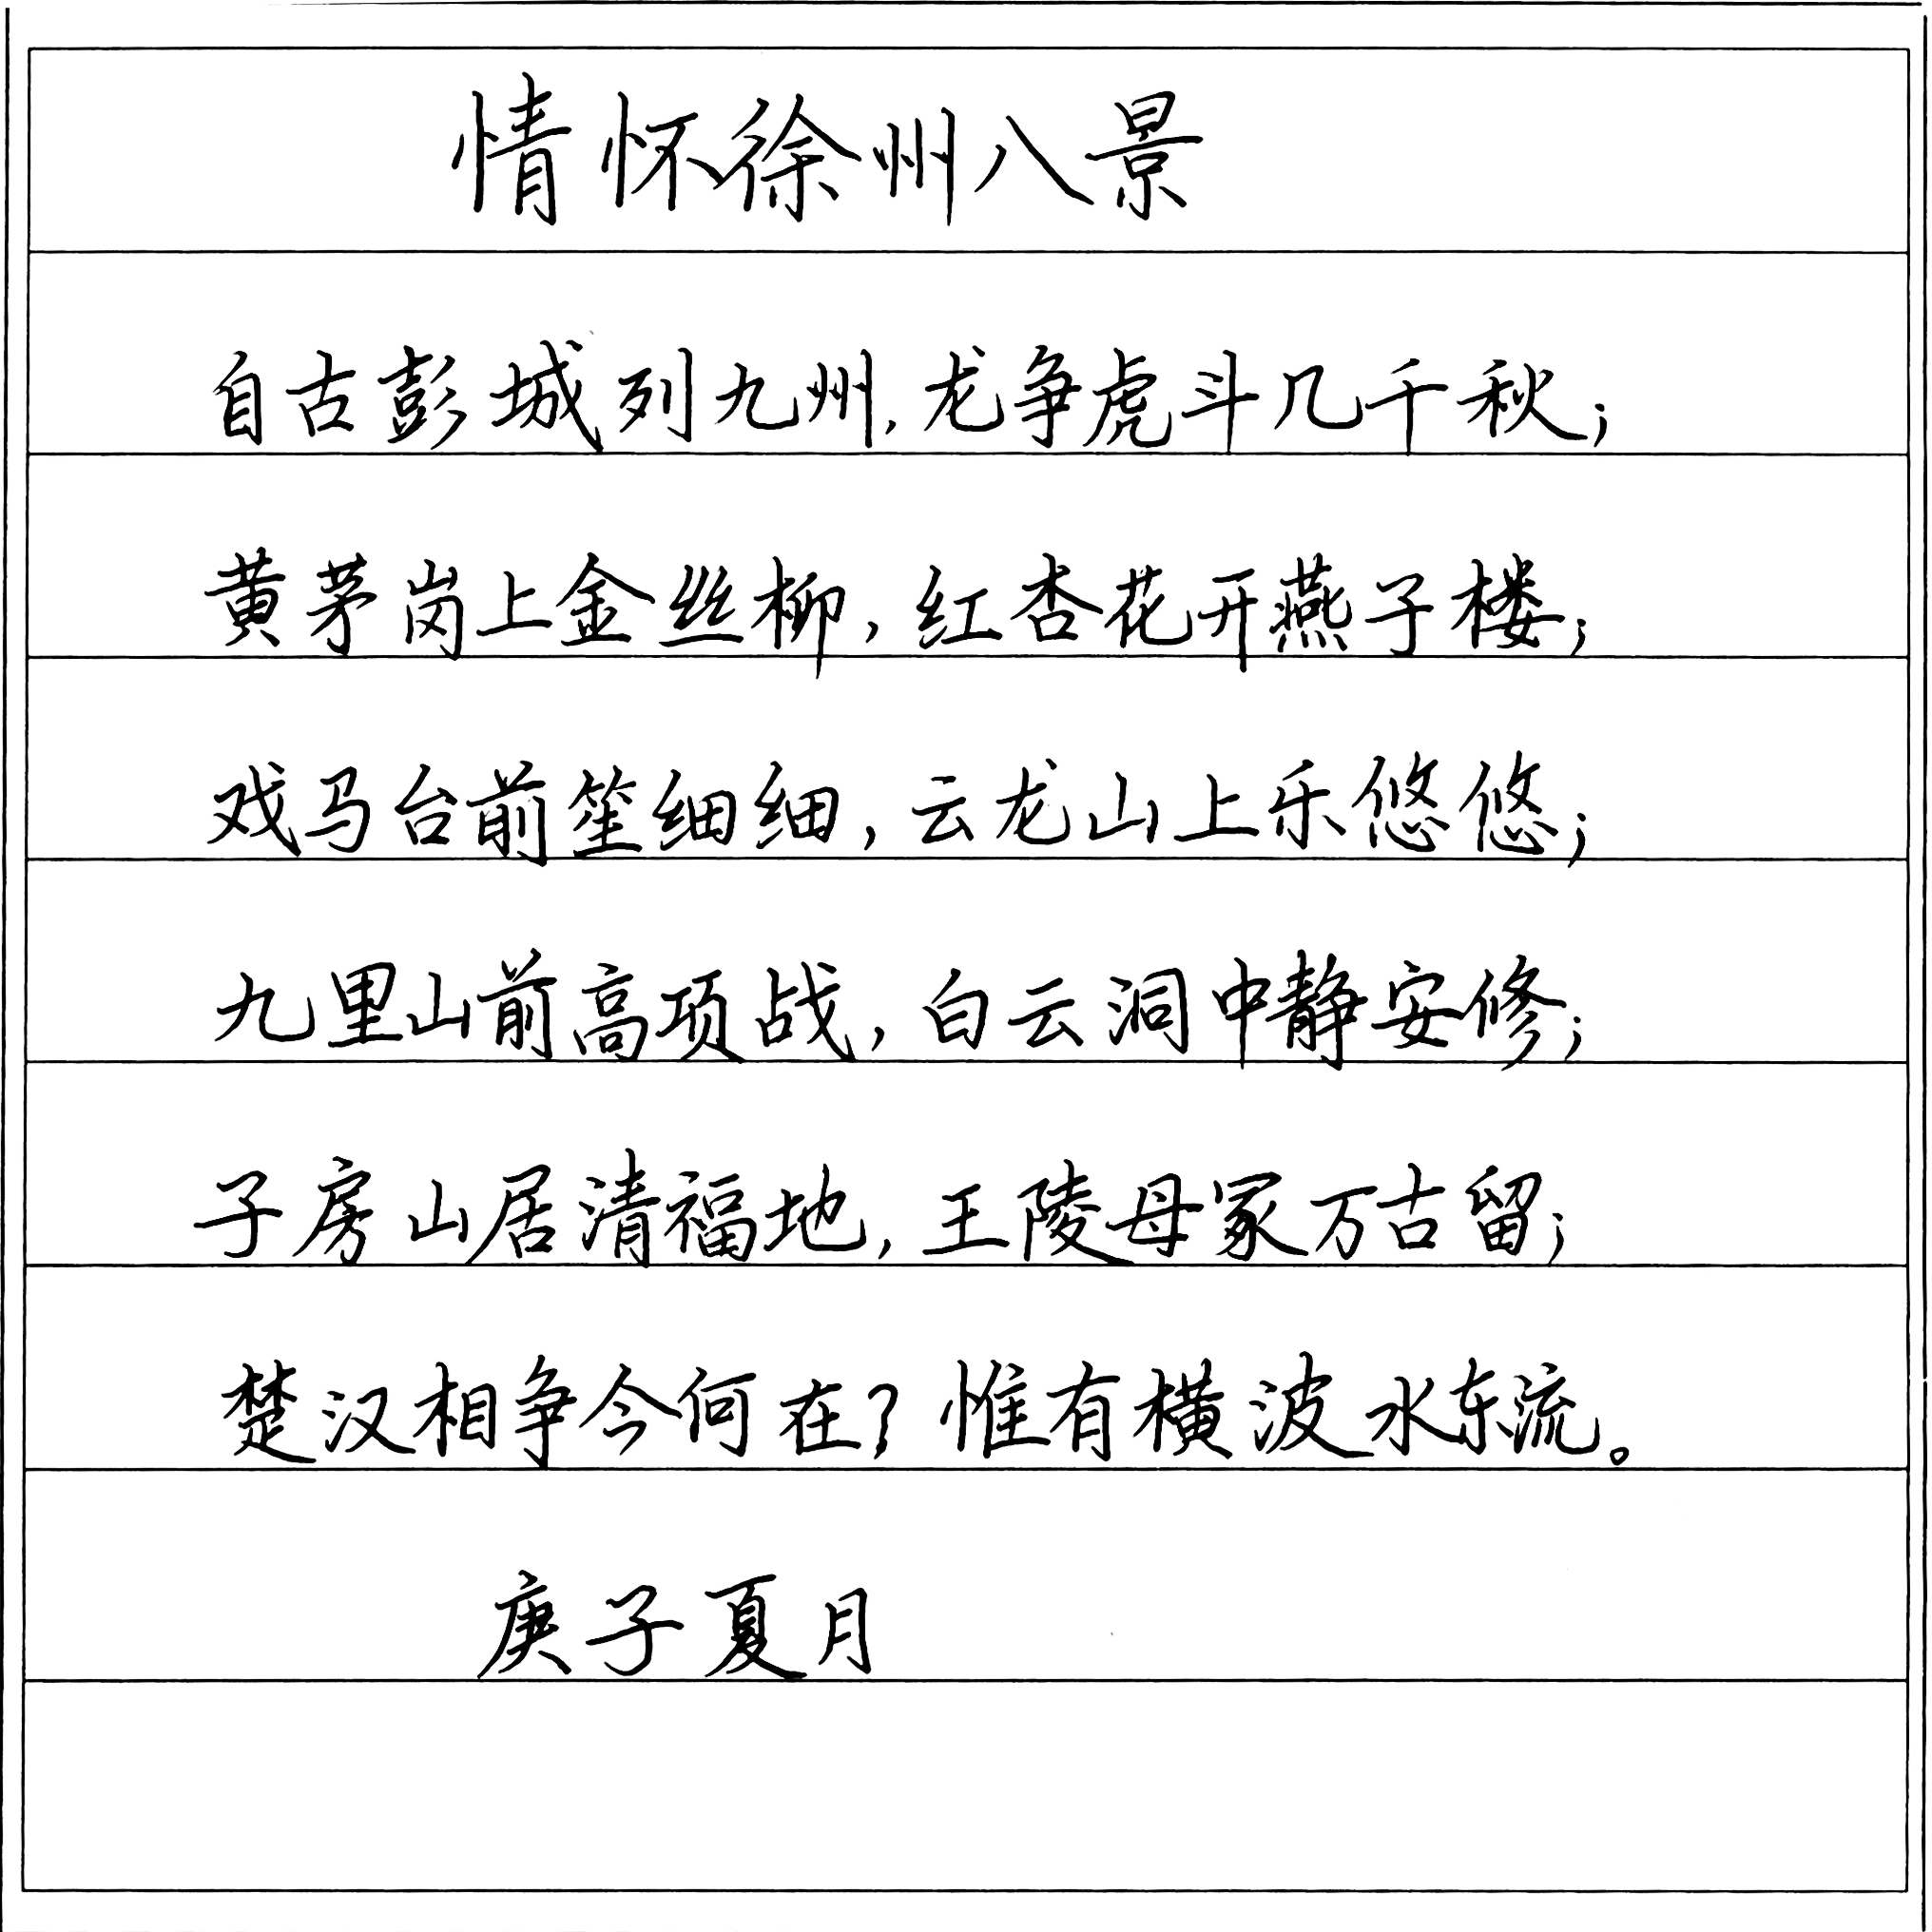 情怀徐州八景
自古彭城列九州,龙争虎斗几千秋;
黄茅岗上金丝柳,红杏花开燕子楼;
戏马台前笙细细,云龙山上乐悠悠;
九里山前高项战,白云洞中静安修;
子房山居清福地,王陵母冢万古留;
楚汉相争今何在?惟有横波水东流。
庚子夏月